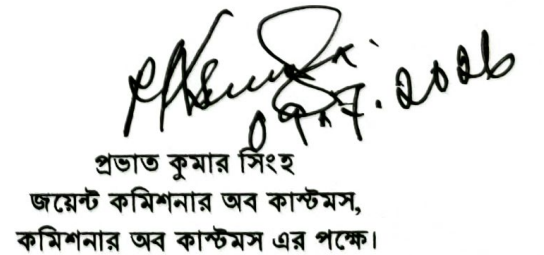 ০৭.৭.২০২৬
প্রভাত কুমার সিংহ
জয়েন্ট কমিশনার অব কাস্টমস,
কমিশনার অব কাস্টমস এর পক্ষে।